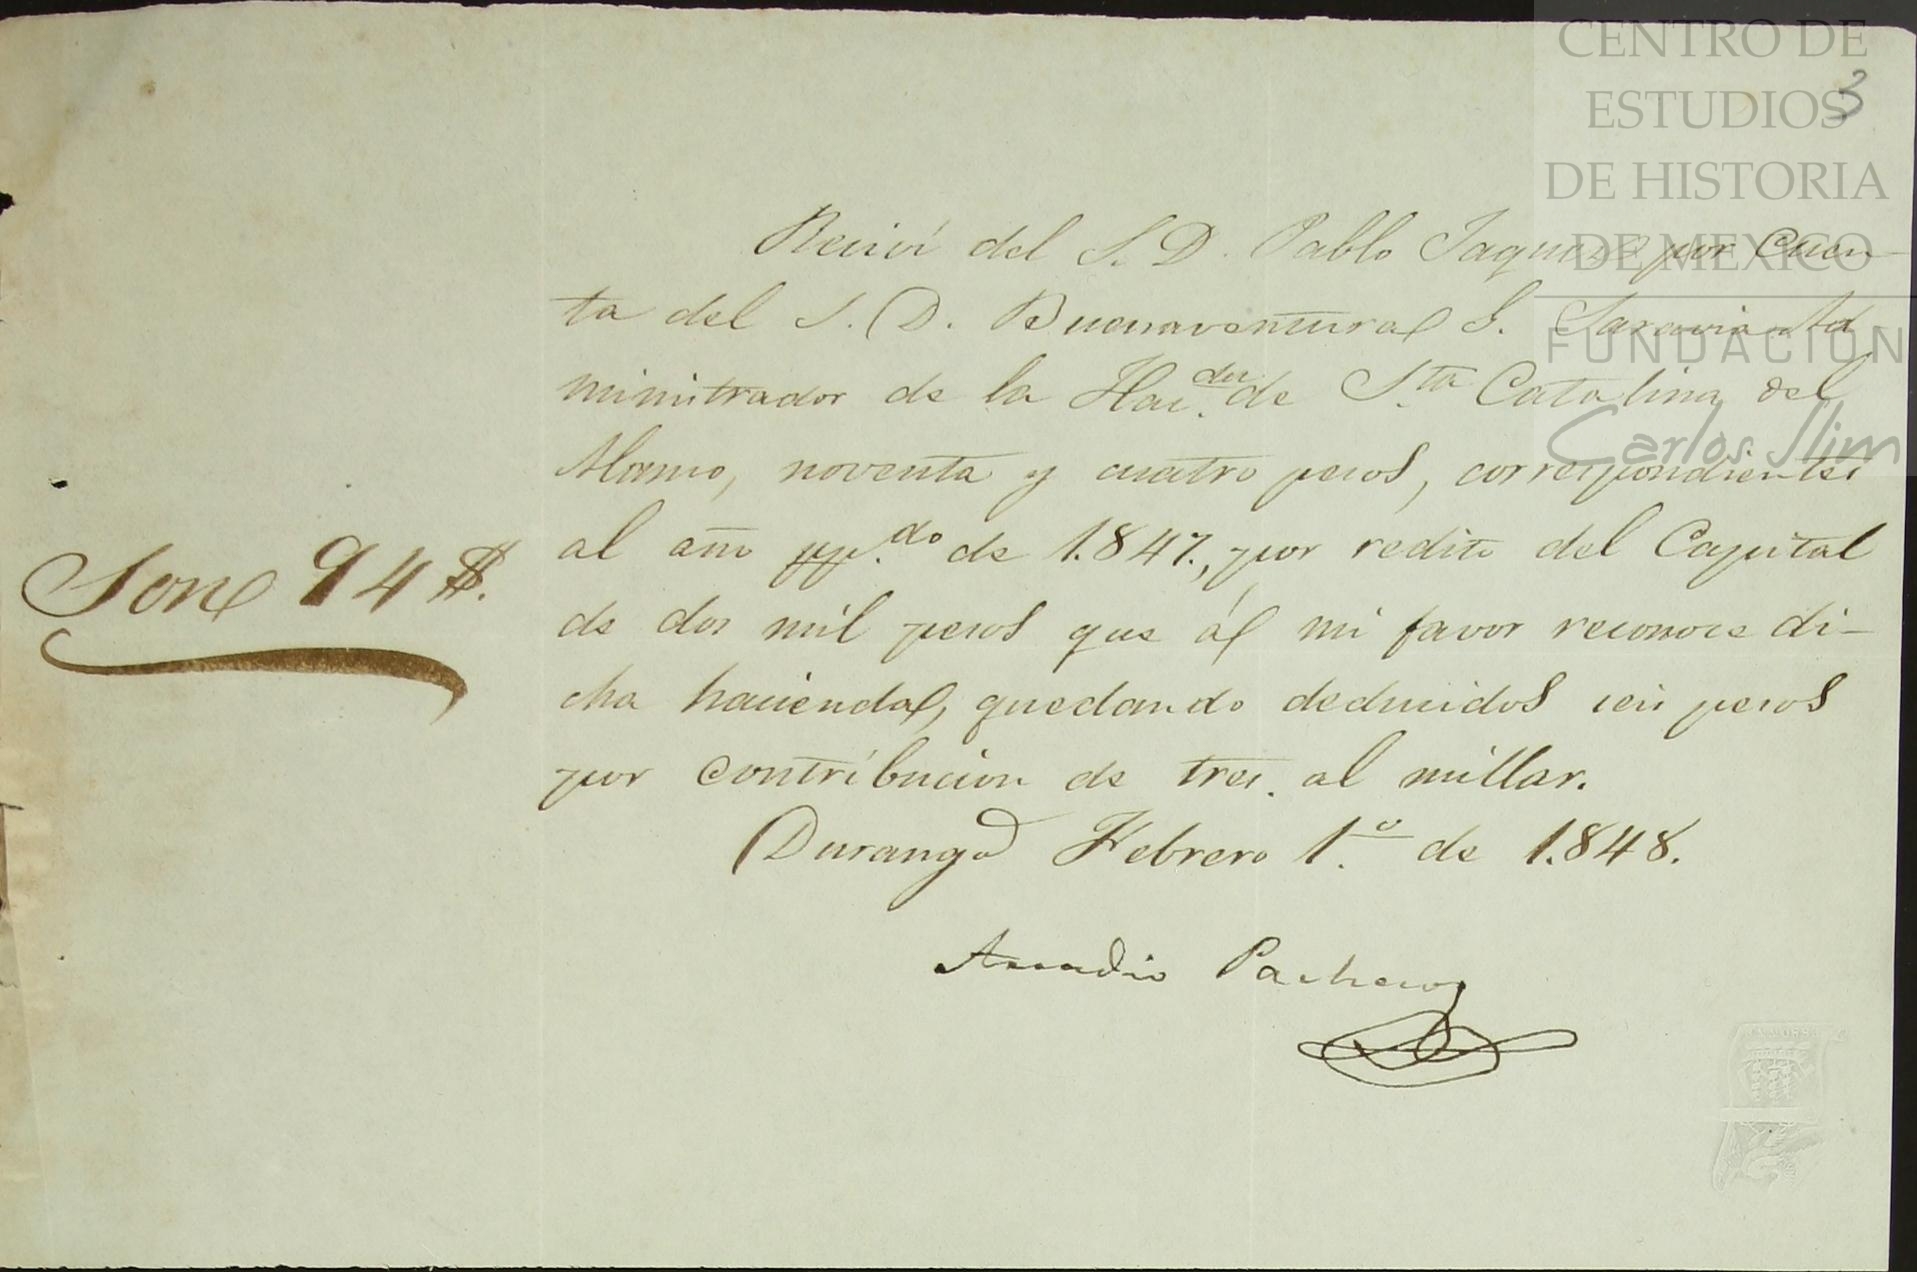 CENTRO DE
ESTUDIOS
DE HISTORIA
DE MEXICO
FUNDACIÓN
Carlos Slim
3
Recivi del S. D. Pablo Jaquez por Cuen-
ta del S. D. Buenaventura G. Saravia Ad
minitrador de la Hac.da de S.ta Catalina del
Alamo, noventa y cuatro pesos, correspondientes
al año pp.do de 1.847., por redito del Capital
de dos mil pesos que á mi favor reconoce di-
cha hacienda, quedando deducidos seis pesos
por contribucion de tres al millar.
Durango Febrero 1.º de 1.848.
Son 94 $.
Pacheco